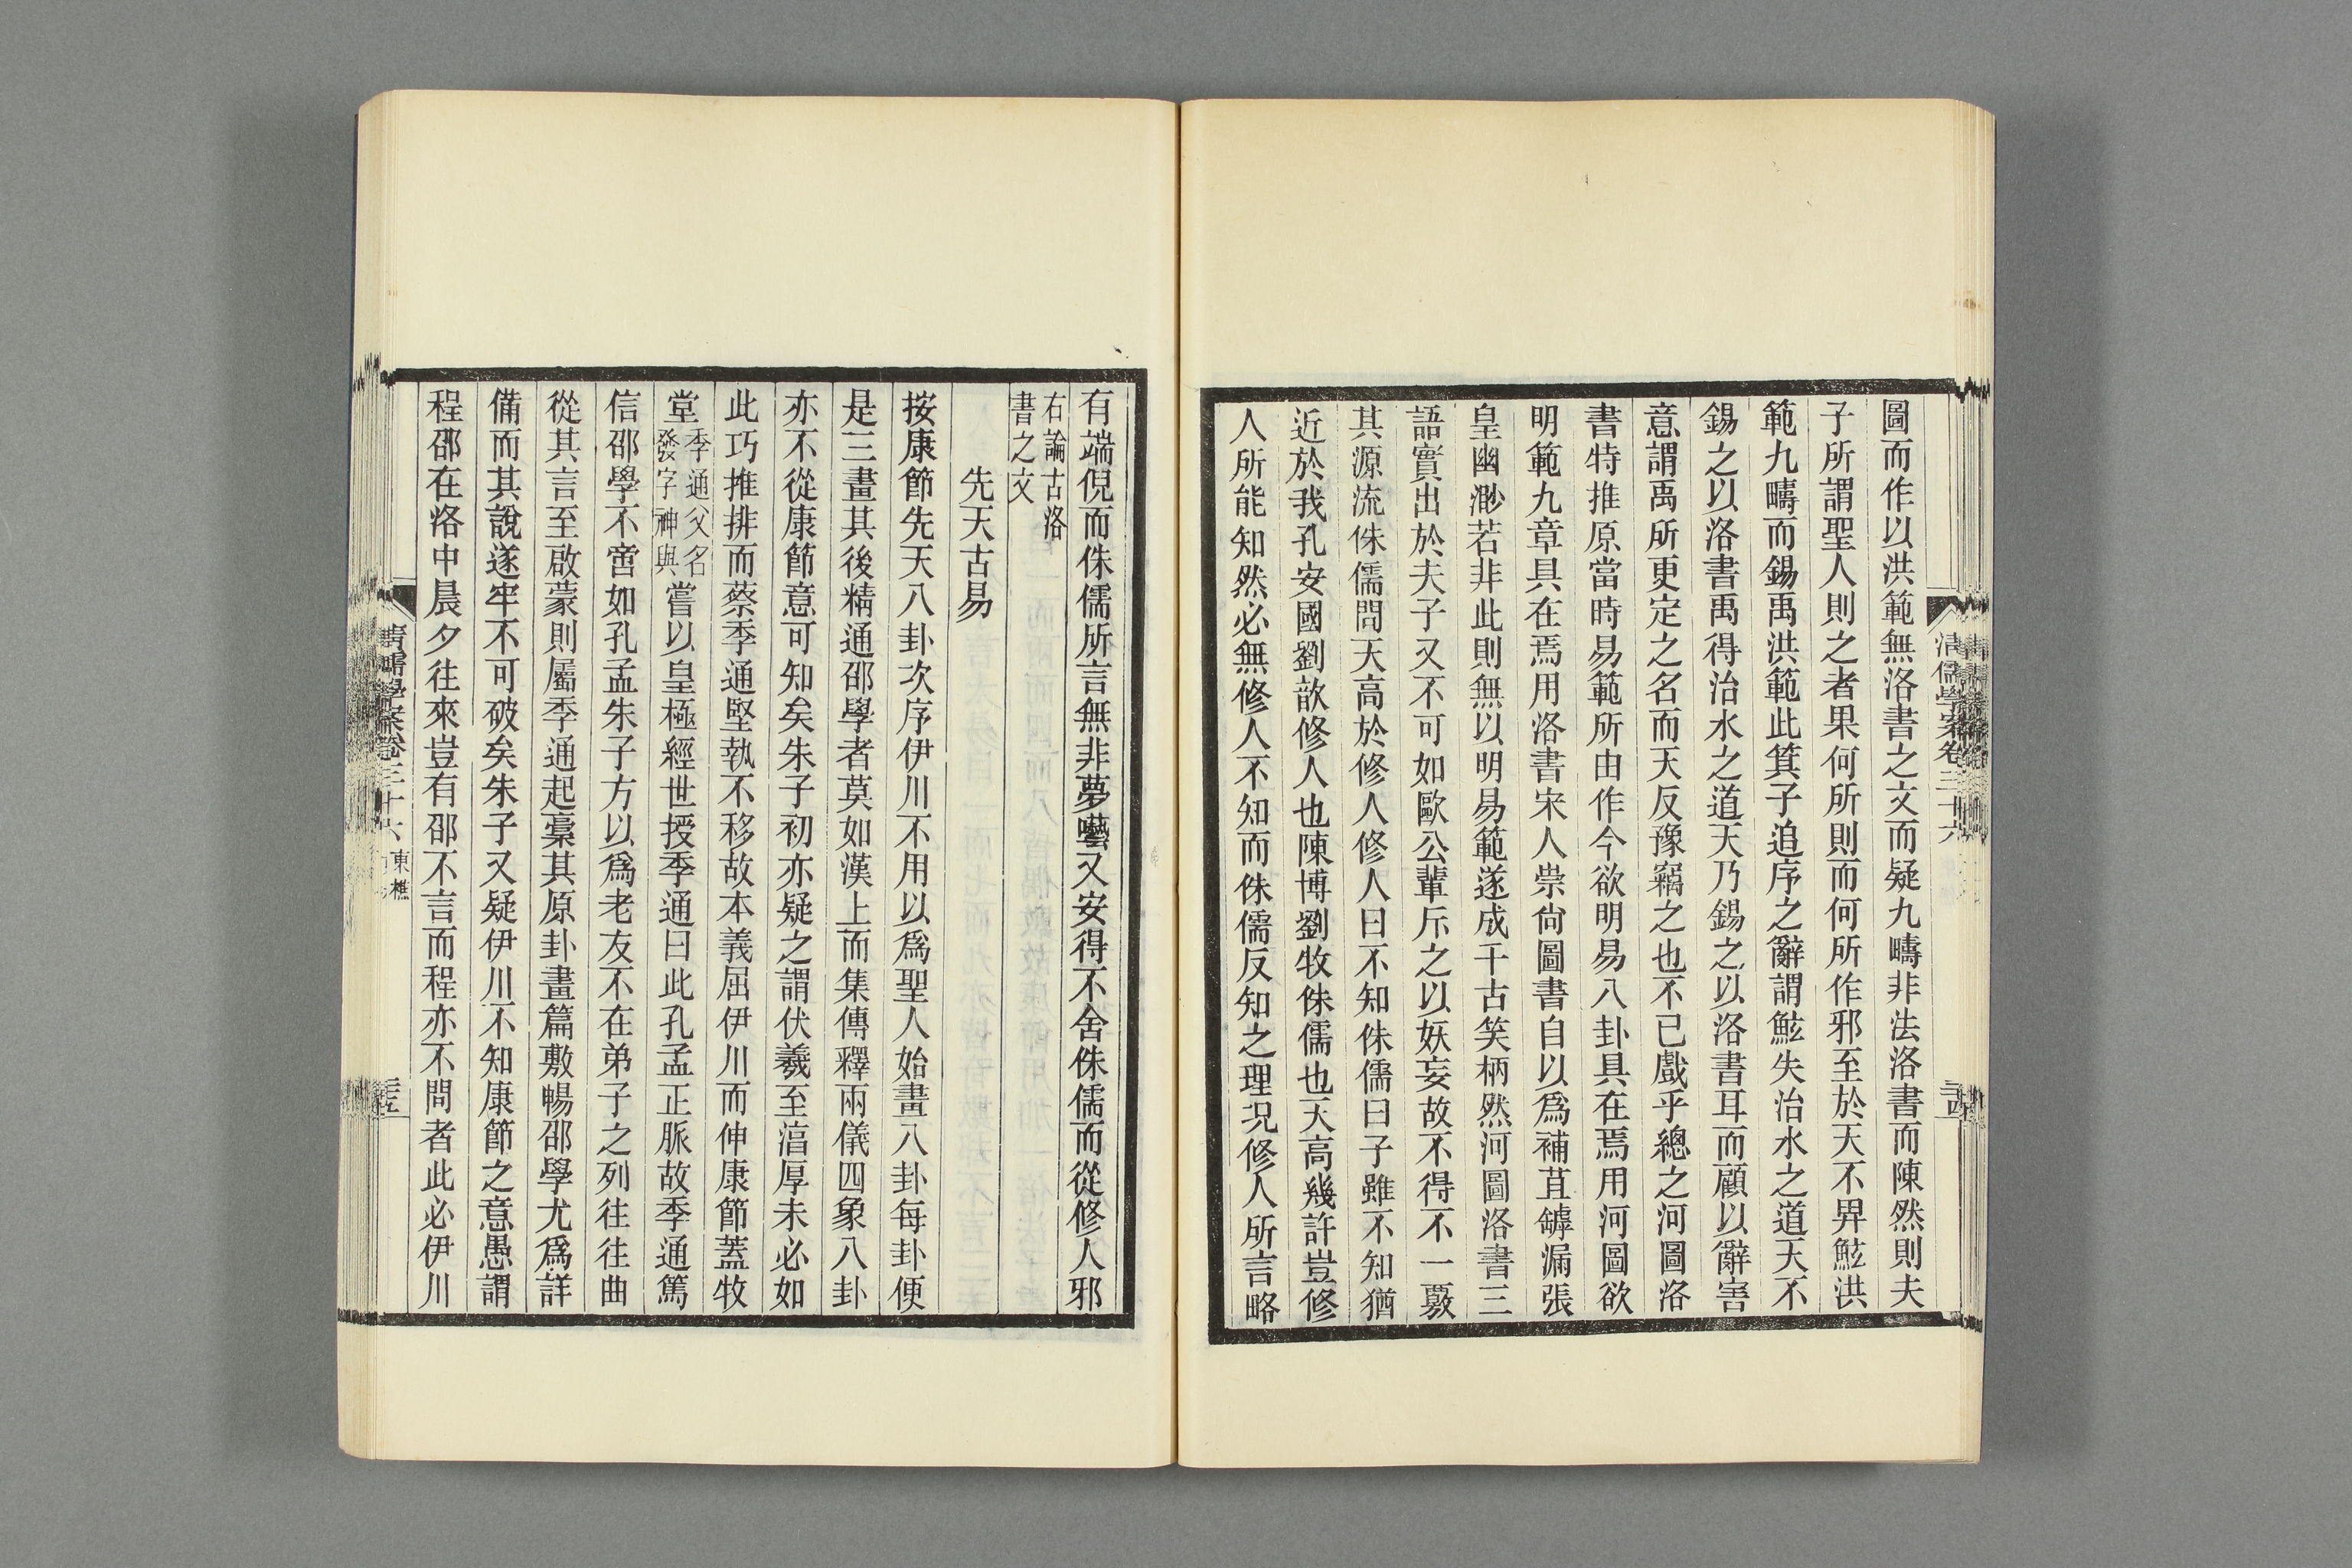 圖而作以洪範無洛書之文而疑九疇非法洛書而陳然則夫
子所謂聖人則之者果何所則而何所作邪至於天不畀鯀洪
範九疇而錫禹洪範此箕子追序之辭謂鯀失治水之道天不
錫之以洛書禹得治水之道天乃錫之以洛書耳而顧以辭害
意謂禹所更定之名而天反豫竊之也不已戲乎總之河圖洛
書特推原當時易範所由作今欲明易八卦具在焉用河圖欲
明範九章具在焉用洛書宋人崇尙圖書自以爲補苴罅漏張
皇幽渺若非此則無以明易範遂成千古笑柄然河圖洛書三
語實出於夫子又不可如歐公輩斥之以妖妄故不得不一覈
其源流侏儒問天高於修人修人曰不知侏儒曰子雖不知猶
近於我孔安國劉歆修人也陳博劉牧侏儒也天高幾許豈修
人所能知然必無修人不知而侏儒反知之理況修人所言略
清儒學案卷三十六
三四
有端倪而侏儒所言無非夢囈又安得不舍侏儒而從修人邪
右論古洛
書之文
先天古易
按康節先天八卦次序伊川不用以爲聖人始畫八卦每卦便
是三畫其後精通邵學者莫如漢上而集傳釋兩儀四象八卦
亦不從康節意可知矣朱子初亦疑之謂伏羲至淳厚未必如
此巧推排而蔡季通堅執不移故本義屈伊川而伸康節蓋牧
堂季通父名發字神與嘗以皇極經世授季通曰此孔孟正脈故季通篤
信邵學不啻如孔孟朱子方以爲老友不在弟子之列往往曲
從其言至啟蒙則屬季通起稾其原卦畫篇敷暢邵學尤爲詳
備而其說遂牢不可破矣朱子又疑伊川不知康節之意愚謂
程邵在洛中晨夕往來豈有邵不言而程亦不問者此必伊川
清儒學案卷三十六 東樵
三五